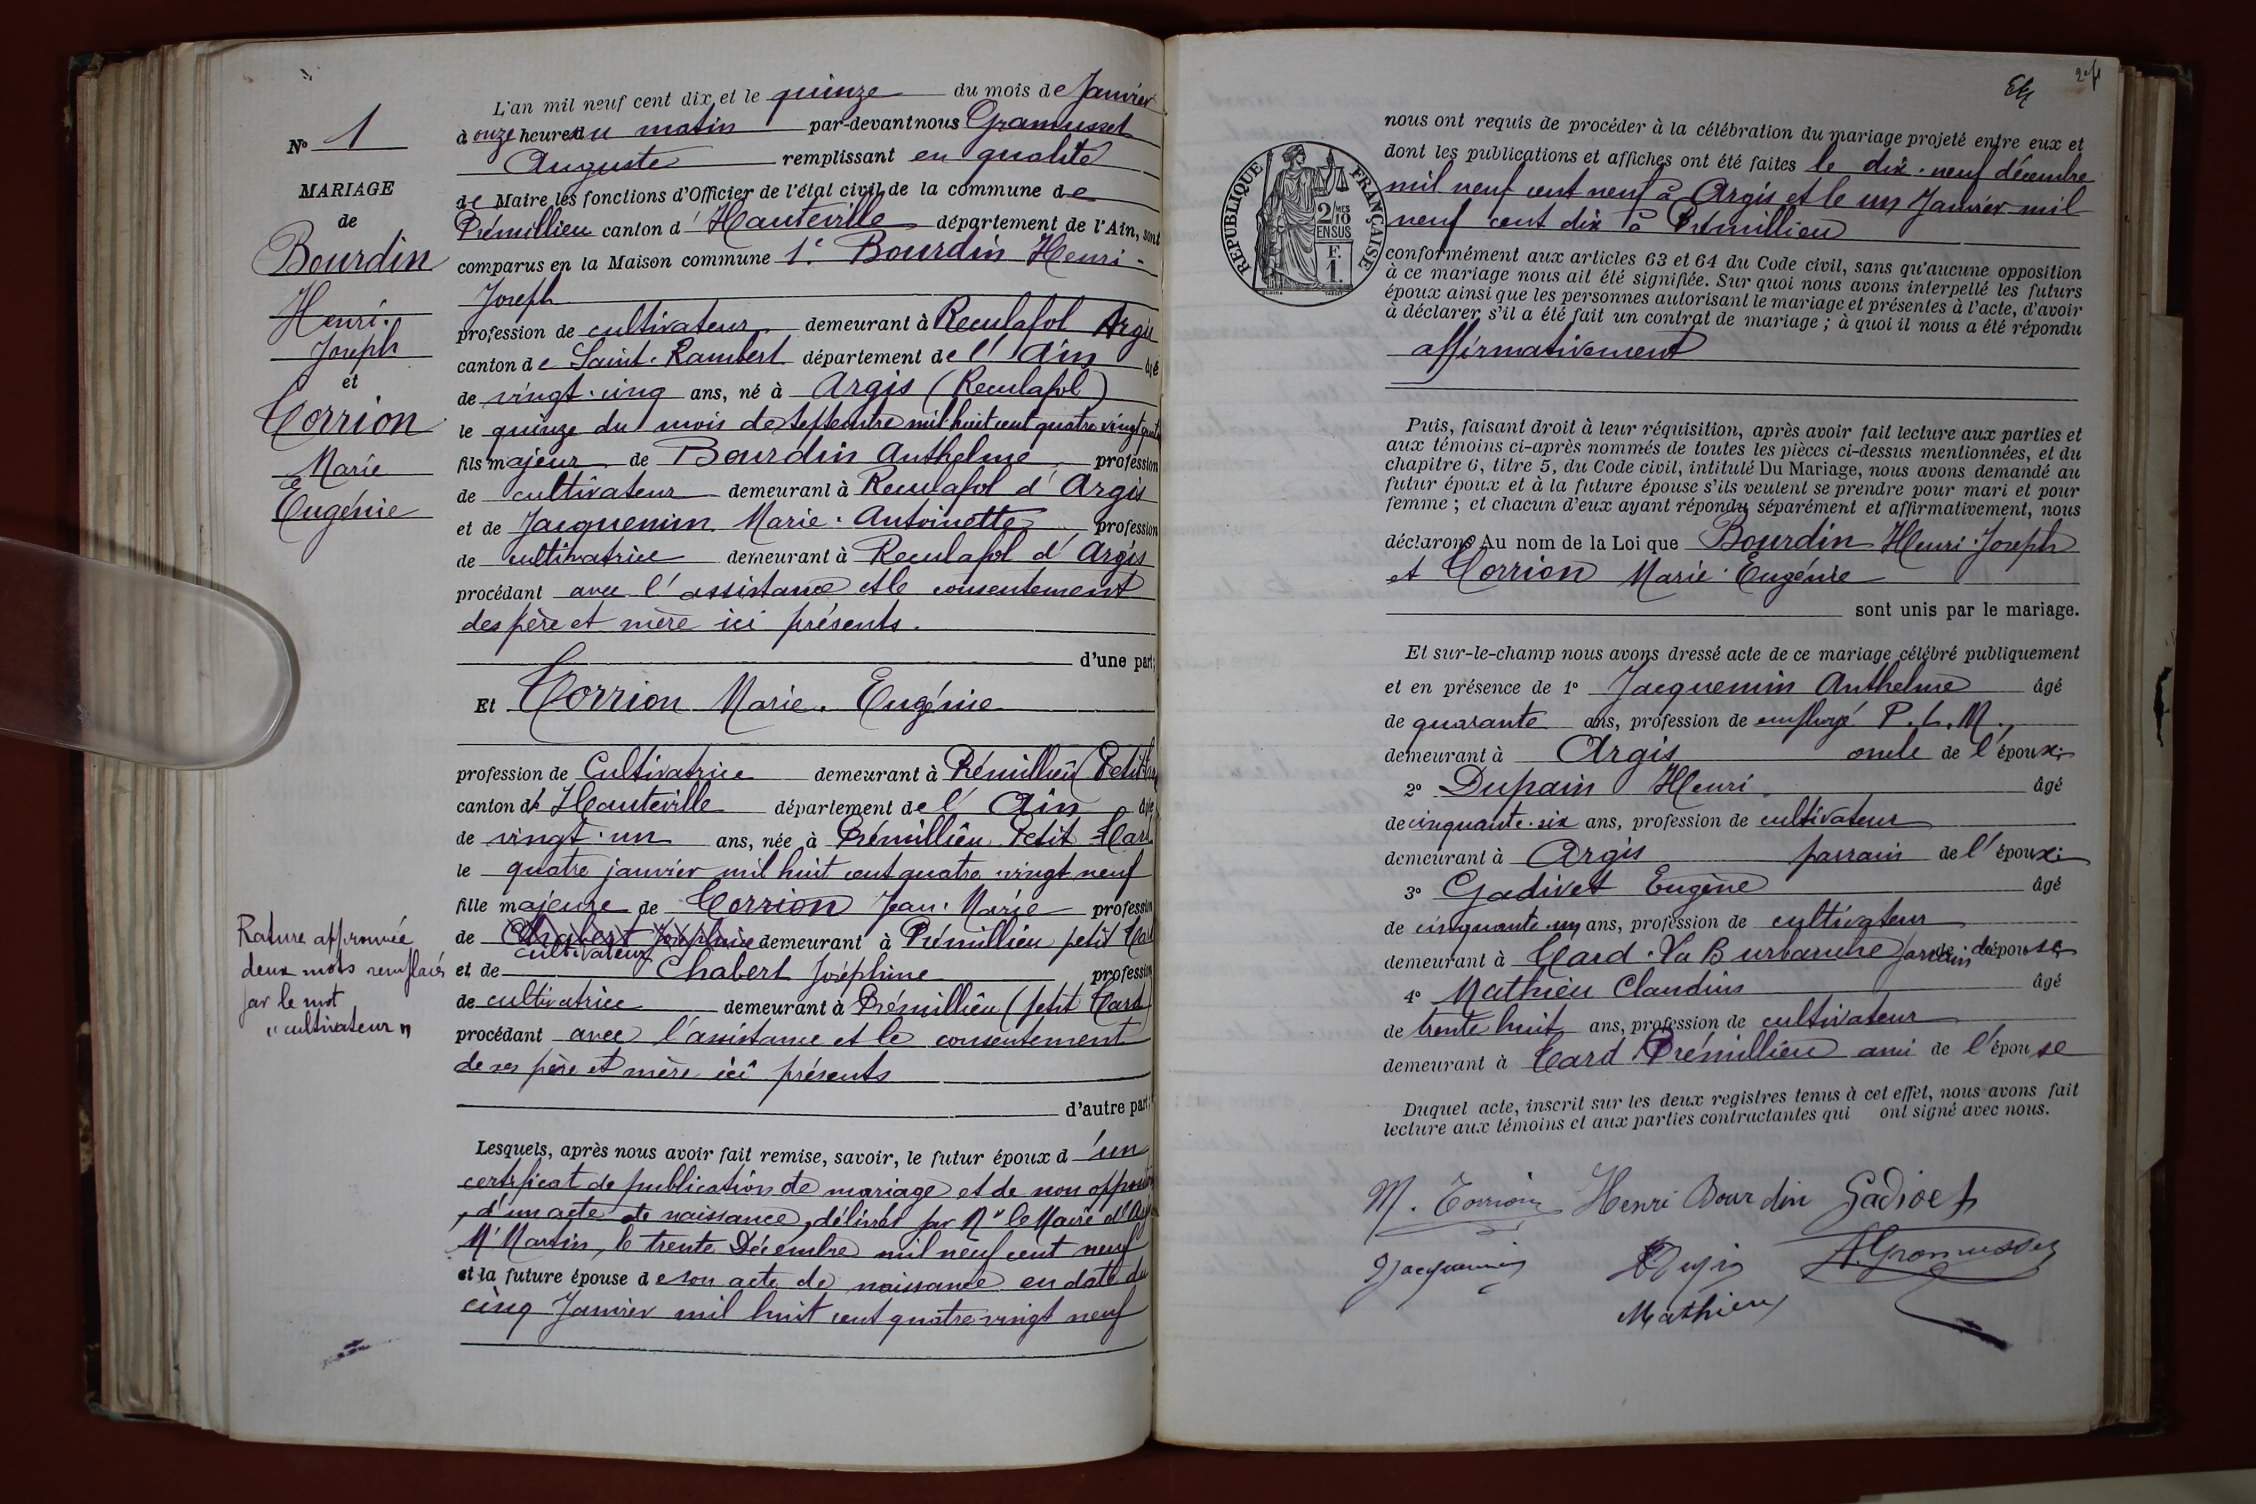 L'an mil neuf cent dix, et le quinze du mois de Janvier
à onze heures du matin par-devant nous Gramusset
Auguste remplissant en qualité
de Maire les fonctions d'Officier de l'état civil de la commune de
Prémillieu canton d'Hauteville département de l'Ain, sont
comparus en la Maison commune 1° Bourdin Henri-
Joseph
profession de cultivateur demeurant à Reculafol Argis
canton de Saint-Rambert département de l'Ain âgé
de vingt-cinq ans, né à Argis (Reculafol)
le quinze du mois de Septembre mil huit cent quatre vingt quatre
fils majeur de Bourdin Anthelme profession
de cultivateur demeurant à Reculafol d'Argis
et de Jacquemin Marie-Antoinette profession
de cultivatrice demeurant à Reculafol d'Argis
procédant avec l'assistance et le consentement
des père et mère ici présents.
d'une part;
Et Corrion Marie-Eugénie
profession de Cultivatrice demeurant à Prémillieu (Petit
canton d'Hauteville département de l'Ain âgée
de vingt-un ans, née à Prémillieu Petit
le quatre janvier mil huit cent quatre vingt neuf
fille majeure de Corrion Jean-Marie profession
de Chabert Joséphine demeurant à Prémillieu petit
cultivateur
et de Chabert Joséphine profession
de cultivatrice demeurant à Prémillieu (petit
procédant avec l'assistance et le consentement
de ses père et mère ici présents
d'autre part;
Lesquels, après nous avoir fait remise, savoir, le futur époux d'un
certificat de publication de mariage et de non opposition
, d'un acte de naissance, délivrés par Mr le Maire d'Argis
Mr Martin, le trente Décembre mil neuf cent neuf
et la future épouse de son acte de naissance en date du
cinq Janvier mil huit cent quatre vingt neuf
N° 1
MARIAGE
de
Bourdin
Henri-
Joseph
et
Corrion
Marie
Eugénie
Rature approuvée
deux mots remplacés
par le mot
"cultivateur"
nous ont requis de procéder à la célébration du mariage projeté entre eux et
dont les publications et affiches ont été faites le dix-neuf décembre
mil neuf cent neuf à Argis et le un Janvier mil
neuf cent dix à Prémillieu
RÉPUBLIQUE FRANÇAISE
2/10
EN SUS
F.
1.
conformément aux articles 63 et 64 du Code civil, sans qu'aucune opposition
à ce mariage nous ait été signifiée. Sur quoi nous avons interpellé les futurs
époux ainsi que les personnes autorisant le mariage et présentes à l'acte, d'avoir
à déclarer s'il a été fait un contrat de mariage; à quoi il nous a été répondu
affirmativement
Puis, faisant droit à leur réquisition, après avoir fait lecture aux parties et
aux témoins ci-après nommés de toutes les pièces ci-dessus mentionnées, et du
chapitre 6, titre 5, du Code civil, intitulé Du Mariage, nous avons demandé au
futur époux et à la future épouse s'ils veulent se prendre pour mari et pour
femme; et chacun d'eux ayant répondu séparément et affirmativement, nous
déclarons Au nom de la Loi que Bourdin Henri-Joseph
et Corrion Marie-Eugénie
sont unis par le mariage.
Et sur-le-champ nous avons dressé acte de ce mariage célébré publiquement
et en présence de 1° Jacquemin Anthelme âgé
de quarante ans, profession de employé P.L.M.,
demeurant à Argis oncle de l'époux;
2° Dupain Henri âgé
de cinquante-six ans, profession de cultivateur
demeurant à Argis parrain de l'époux;
3° Gadivet Eugène âgé
de cinquante-un ans, profession de cultivateur
demeurant à La Burbanche parrain de l'épouse
4° Mathieu Claudius âgé
de trente huit ans, profession de cultivateur
demeurant à Prémillieu ami de l'épouse
Duquel acte, inscrit sur les deux registres tenus à cet effet, nous avons fait
lecture aux témoins et aux parties contractantes qui ont signé avec nous.
M. Corrion Henri Bourdin Gadivet
Jacquemin A. Gramusset
Mathieu